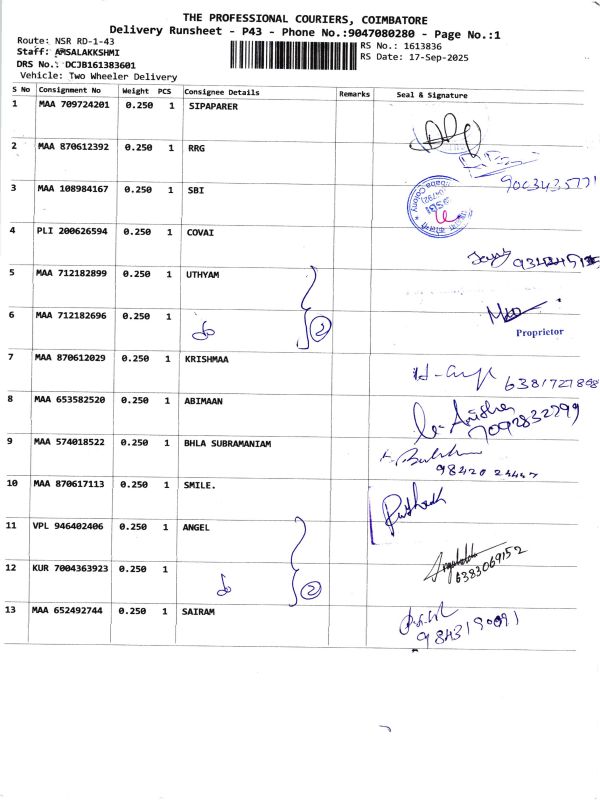 THE PROFESSIONAL COURIERS, COIMBATORE
Delivery Runsheet - P43 - Phone No.:9047080280 - Page No.:1
Route: NSR RD-1-43
Staff: ARSALAKKSHMI
DRS No.: DCJB161383601
Vehicle: Two Wheeler Delivery
RS No.: 1613836
RS Date: 17-Sep-2025
S No Consignment No Weight PCS Consignee Details Remarks Seal & Signature
1 MAA 709724201 0.250 1 SIPAPARER
2 MAA 870612392 0.250 1 RRG
9003435771
3 MAA 108984167 0.250 1 SBI
SBI
Colony
4 PLI 200626594 0.250 1 COVAI
5 MAA 712182899 0.250 1 UTHYAM
6 MAA 712182696 0.250 1
do 2
Proprietor
7 MAA 870612029 0.250 1 KRISHMAA
6381727868
8 MAA 653582520 0.250 1 ABIMAAN
7092832799
9 MAA 574018522 0.250 1 BHLA SUBRAMANIAM
10 MAA 870617113 0.250 1 SMILE.
11 VPL 946402406 0.250 1 ANGEL
12 KUR 7004363923 0.250 1
do 2
6383069152
13 MAA 652492744 0.250 1 SAIRAM